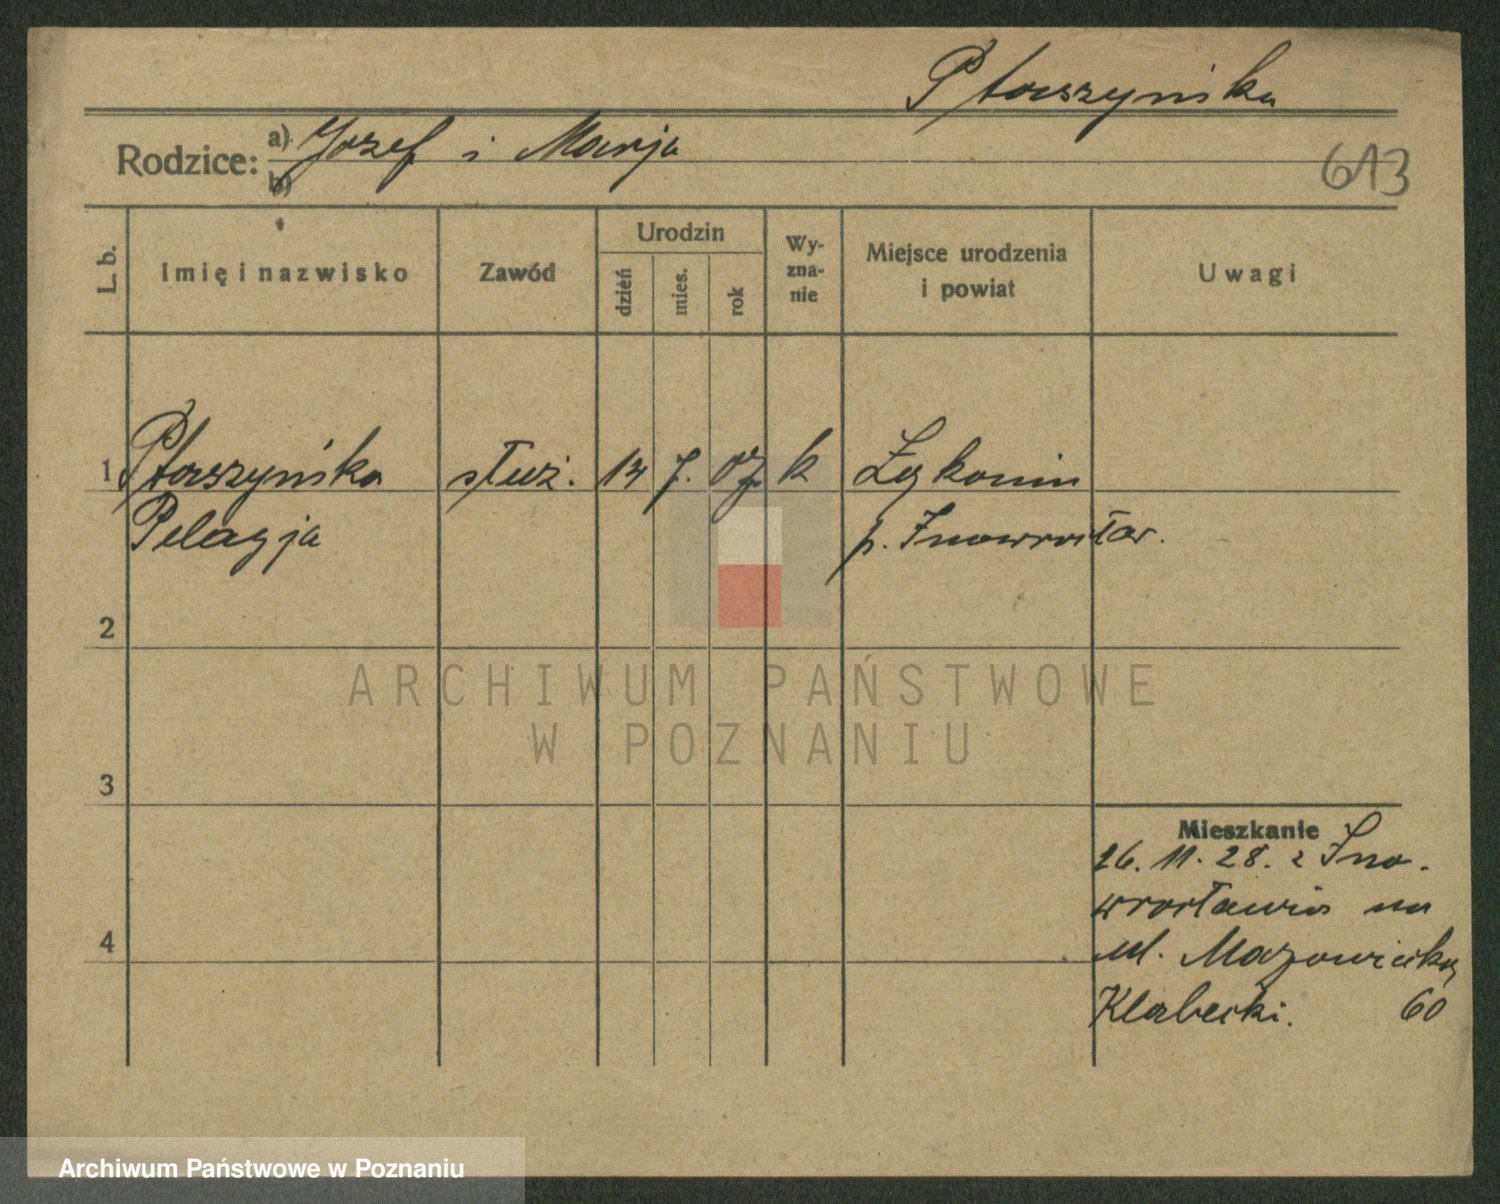 Ptaszyńska
Rodzice: a) Jozef i Marja
b)
613
L. b. Imię i nazwisko Zawód Urodzin dzień mies. rok Wyznanie Miejsce urodzenia i powiat Uwagi
1 Ptaszyńska służ. 14 7. 07 k
Pelagja p. Inowrocław.
2
ARCHIWUM PAŃSTWOWE
W POZNANIU
3
Mieszkanie
26. 11. 28. z Ino-
wrocławia na
4
ul. Mazowiecką
Klabecki. 60
Archiwum Państwowe w Poznaniu